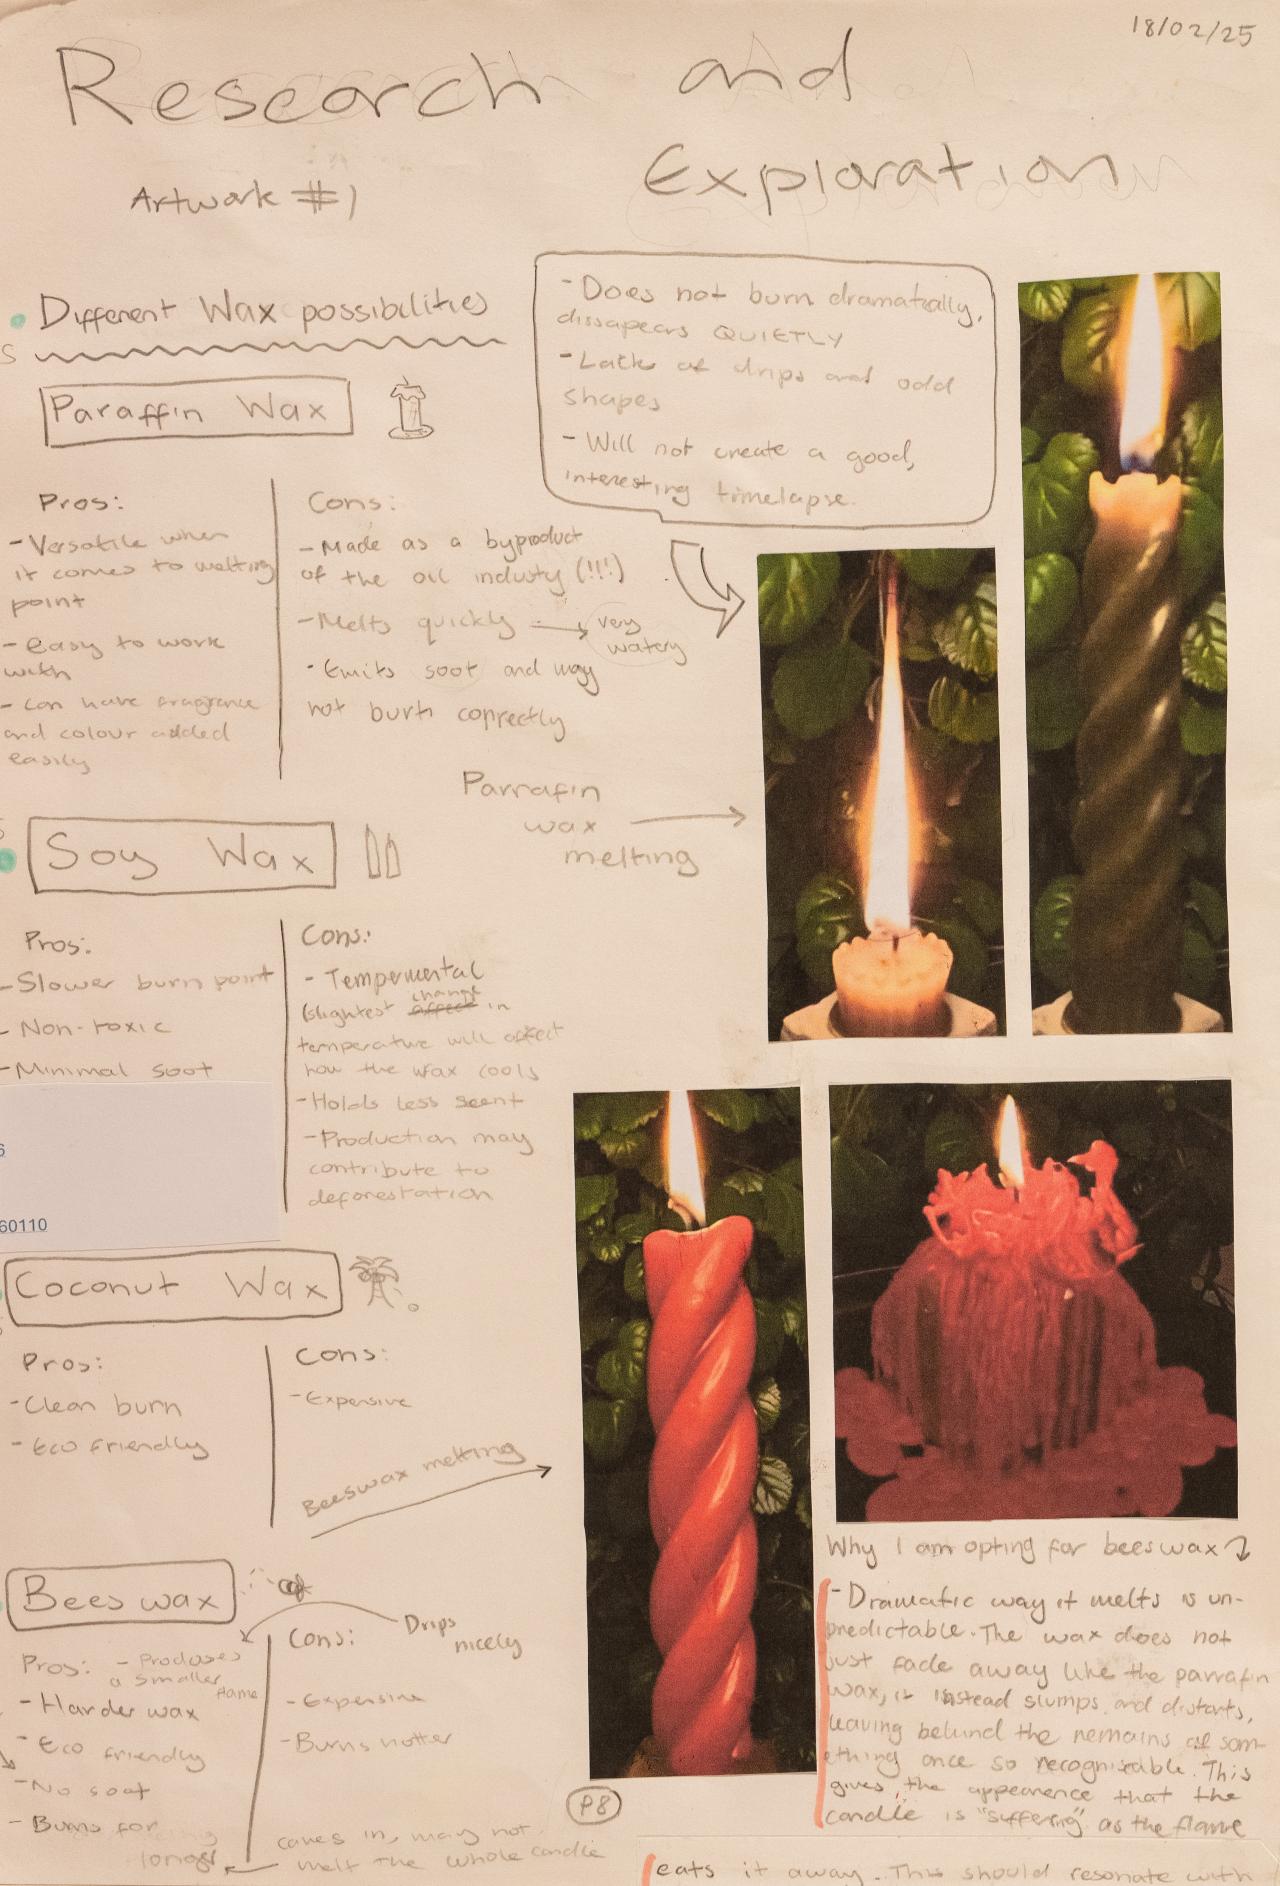 18/02/25
Research and
Exploration
Artwork #1
Different Wax possibilities
s
- Does not burn dramatically,
dissapears QUIETLY
- Lack of drips and odd
shapes
- Will not create a good,
interesting timelapse.
Paraffin Wax
Pros:
- Versatile when
it comes to melting
point
- easy to work
with
- can have fragrance
and colour added
easily
Cons:
- Made as a byproduct
of the oil industy (!!!)
- Melts quickly → very
watery
- Emits soot and may
not burn coprrectly
Parrafin
wax
melting
Soy Wax
Pros:
- Slower burn point
- Non-toxic
- Minimal soot
Cons:
- Tempermental
(slightest change in
temperature will affect
how the wax cools
- Holds less scent
- Production may
contribute to
deforestation
6
60110
Coconut Wax
Pros:
- Clean burn
- Eco friendly
Cons:
- Expensive
Beeswax melting
Bees wax
Drips
nicely
Pros: - Produses
a smaller
flame
- Harder wax
- Eco friendly
- No soot
- Burns for
longer
Cons:
- Expensive
- Burns hotter
caves in, may not
melt the whole candle
P8
Why I am opting for beeswax
- Dramatic way it melts is un-
predictable. The wax does not
just fade away like the parrafin
wax, it instead slumps and distorts,
leaving behind the remains of som-
ething once so recognisable. This
gives the appearence that the
candle is "suffering" as the flame
eats it away. This should resonate with